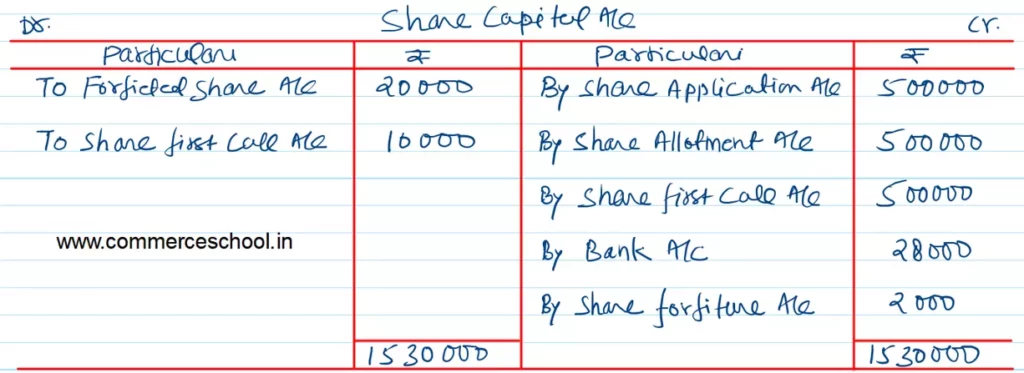 Dr. Share Capital A/c Cr.
Particulars ₹ Particulars ₹
To Forfieted Share A/c 20000 By Share Application A/c 500000
To Share first Call A/c 10000 By Share Allotment A/c 500000
By Share first Call A/c 500000
www.commerceschool.in By Bank A/c 28000
By Share forfiture A/c 2000
1530000 1530000